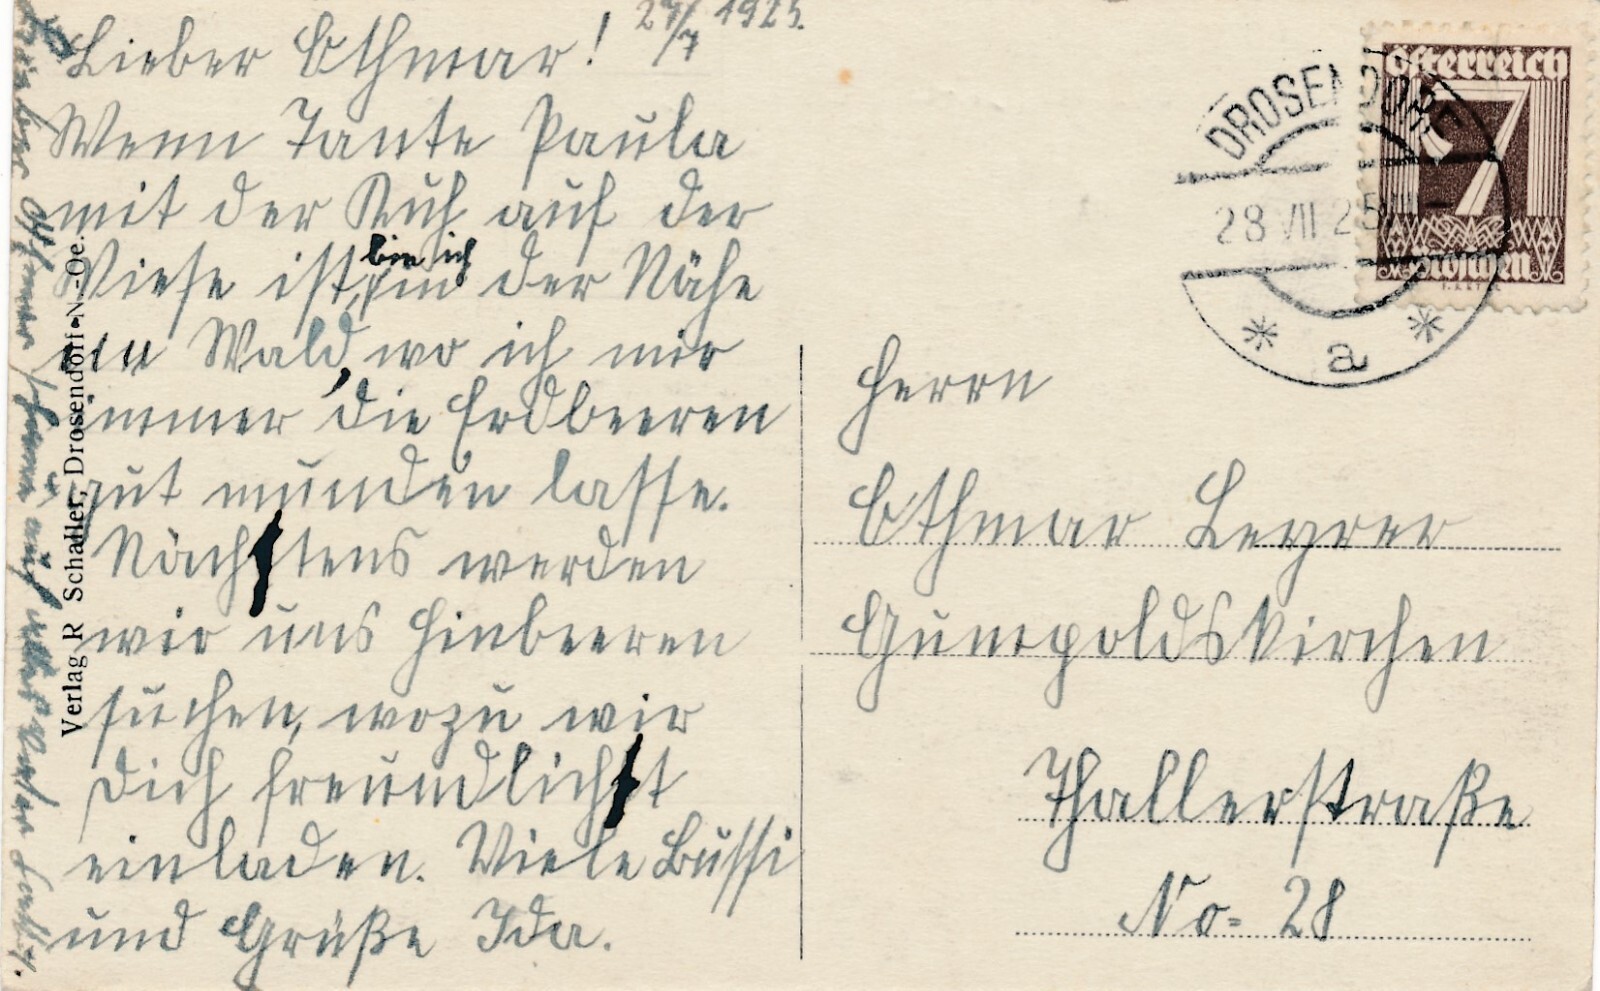 27/7 1925.
Lieber Othmar!
Wenn Tante Paula
mit der Kuh auf der
Wiese ist, bin ich in der Nähe
im Wald, wo ich mir
immer die Erdbeeren
gut munden lasse.
Nächstens werden
wir uns Himbeeren
suchen, wozu wir
Dich freundlichst
einladen. Viele Bussi
und Grüße Ida.
Lieber Othmar
Verlag R Schaller, Drosendorf N.-Oe.
Österreich
7
Groschen
DROSENDORF
28 VII 25
* a *
Herrn
Othmar Leyrer
Gumpoldskirchen
Thallerstraße
No= 28